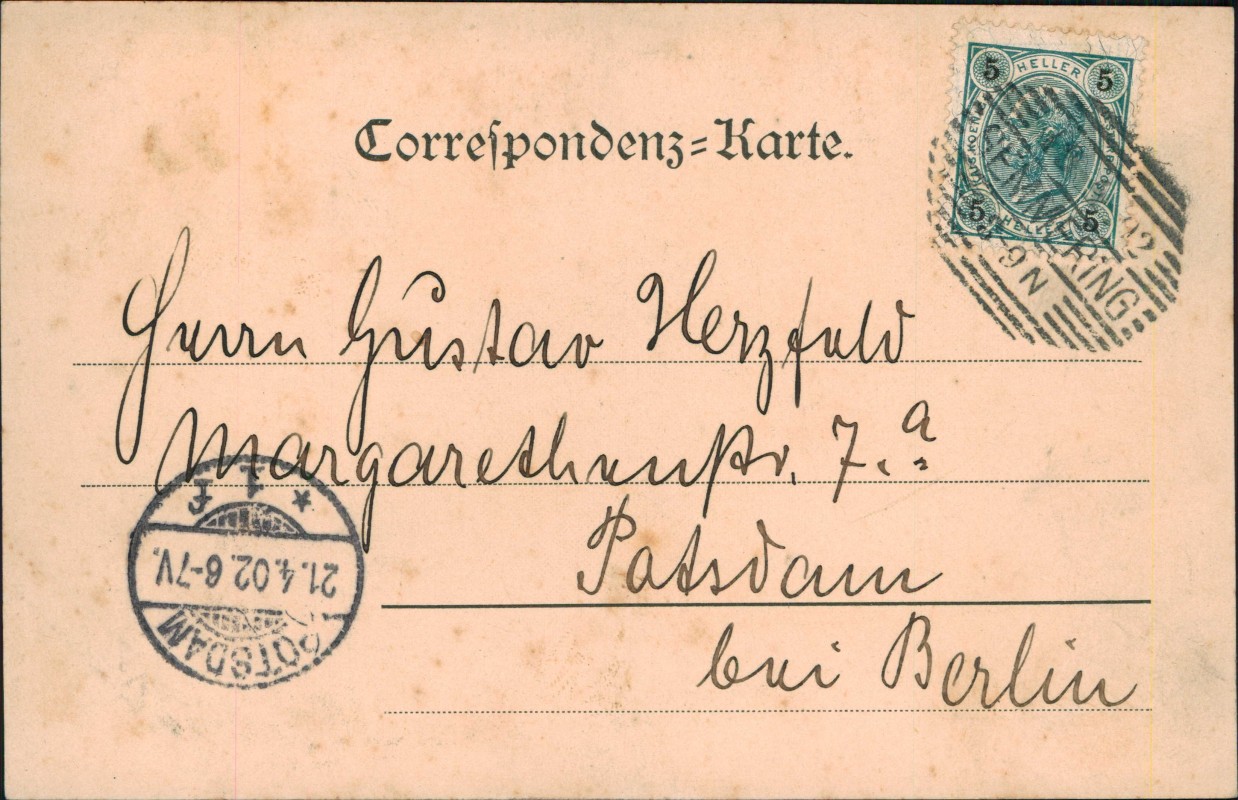 Correſpondenz=Karte.
5 HELLER 5
5 HELLER 5
SEMMERING
9 N
Herrn Gustav Herzfeld
Margarethenstr. 7.a
Potsdam
bei Berlin
POTSDAM
21.4.02. 6-7V.
* 1 f